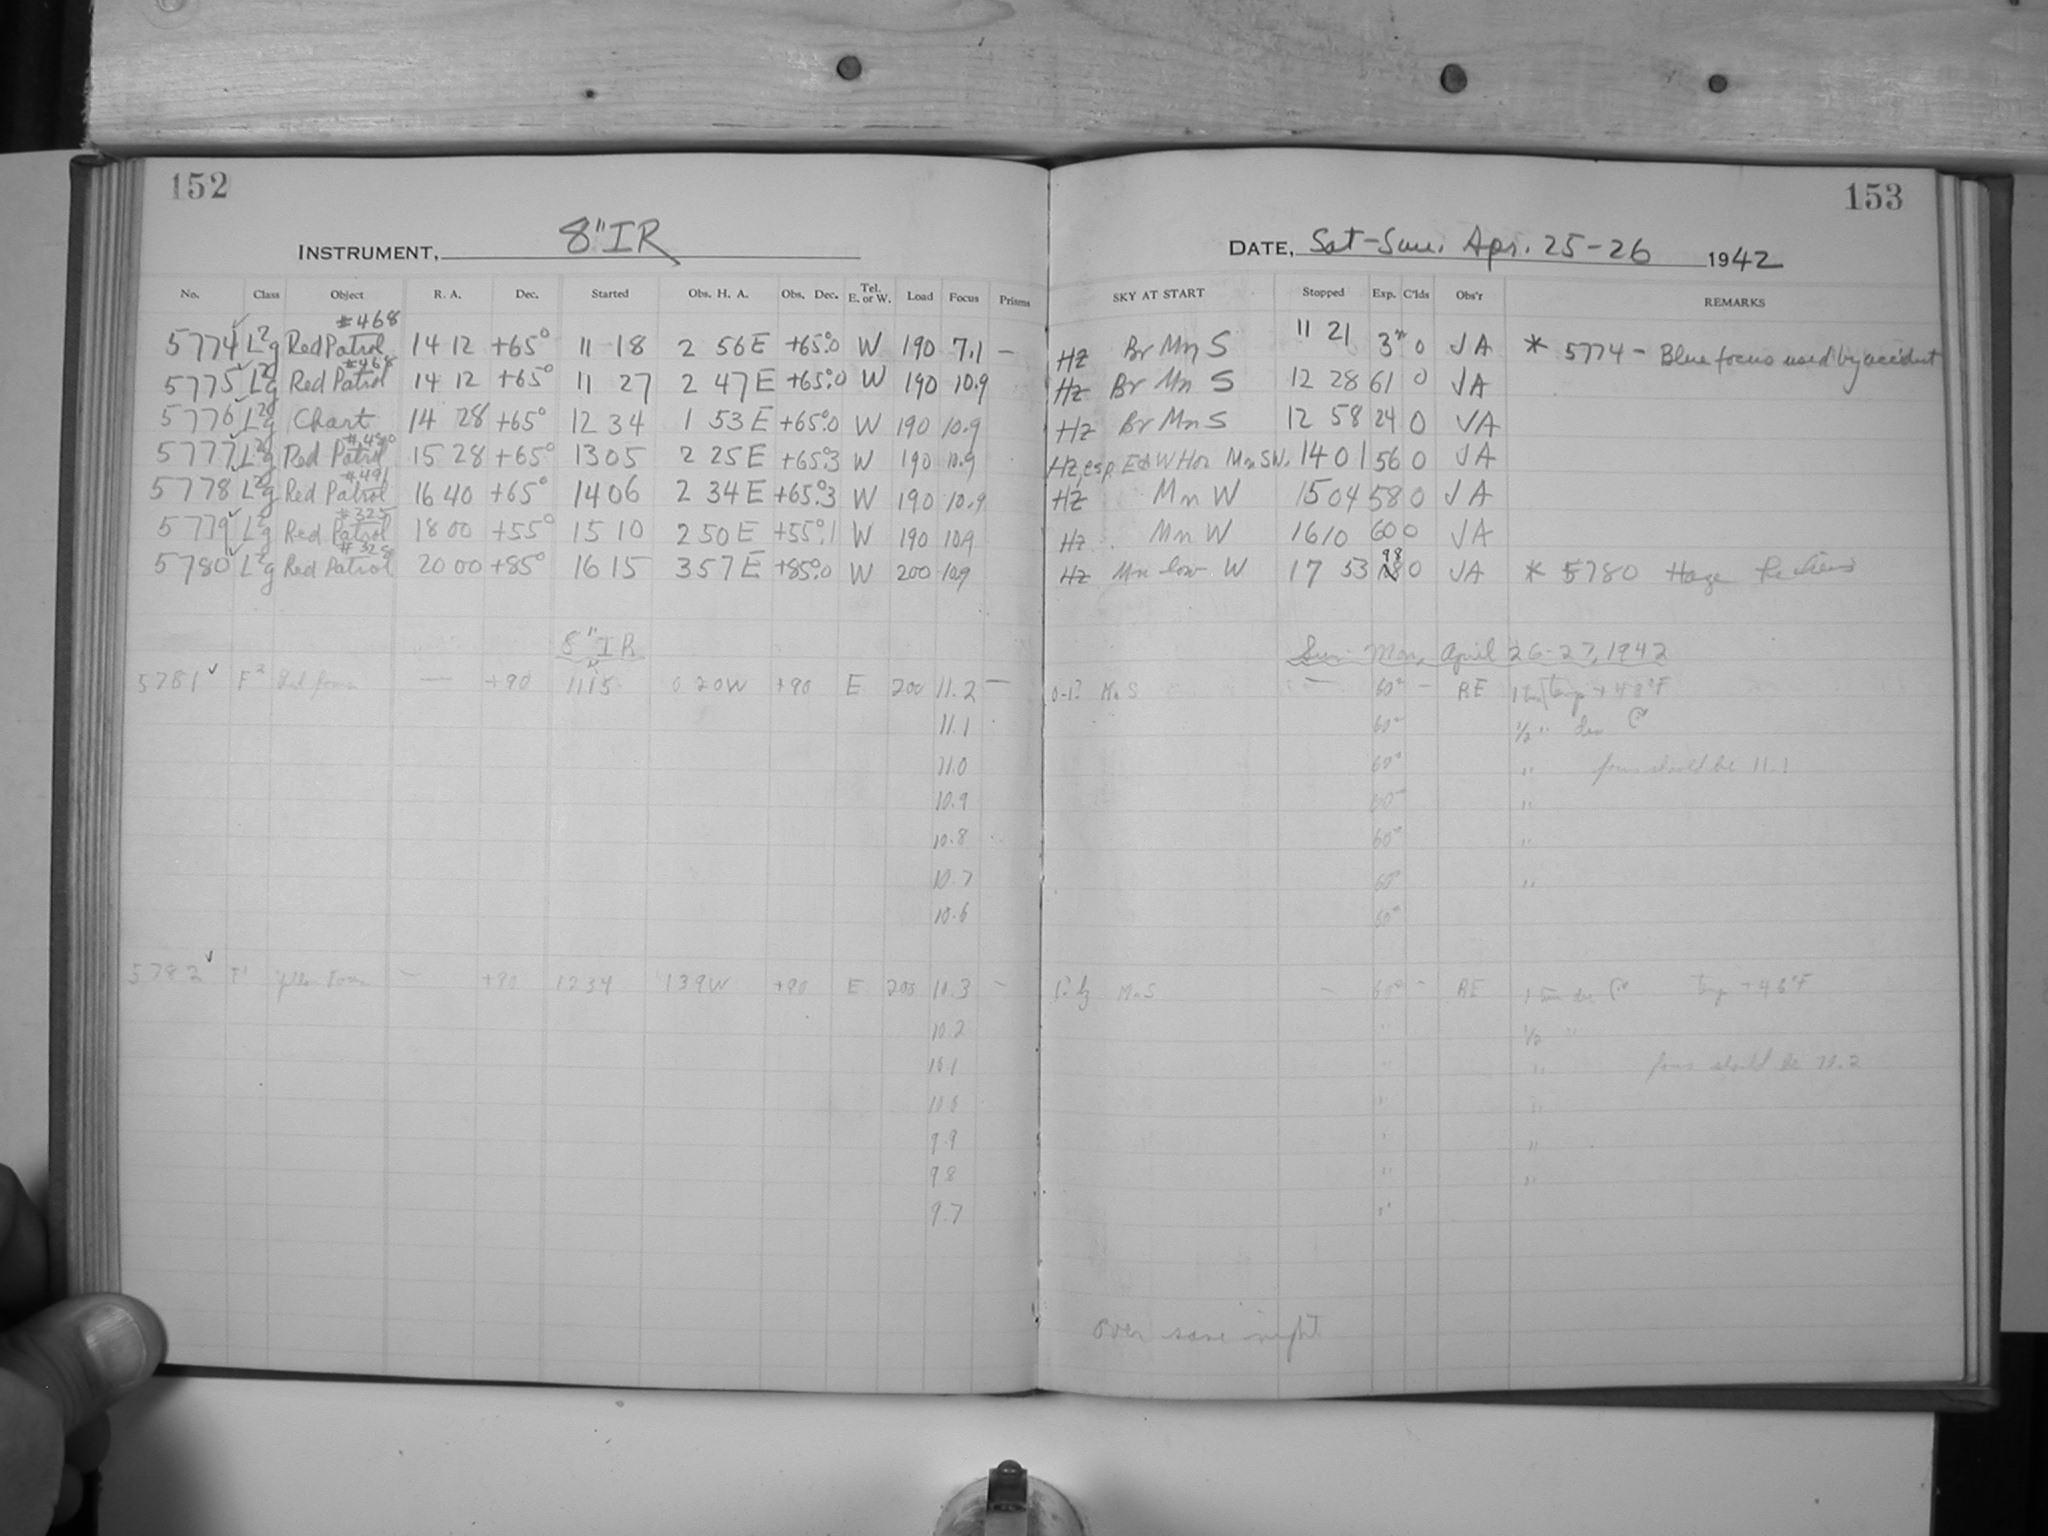 152
153
INSTRUMENT, 8" IR
DATE, Sat-Sun. Apr. 25-26 1942
No. Class Object R. A. Dec. Started Obs. H. A. Obs. Dec. Tel. E. or W. Load Focus Prisms SKY AT START Stopped Exp. C'lds Obs'r REMARKS
#468
5774 L2g Red Patrol 14 12 +65° 11 18 2 56 E +65°.0 W 190 7.1 — Hz Br Mn S 11 21 3m 0 JA * 5774 - Blue focus used by accident
#468
5775 L2g Red Patrol 14 12 +65° 11 27 2 47 E +65°.0 W 190 10.9 Hz Br Mn S 12 28 61 0 JA
5776 L2g Chart 14 28 +65° 12 34 1 53 E +65°.0 W 190 10.9 Hz Br Mn S 12 58 24 0 JA
5777 L2g Red Patrol 15 28 +65° 13 05 2 25 E +65°.3 W 190 10.9 Hz, esp. E & W Hor Mn SW. 14 01 56 0 JA
#491
5778 L2g Red Patrol 16 40 +65° 14 06 2 34 E +65°.3 W 190 10.9 Hz Mn W 15 04 58 0 JA
#325
5779 L2g Red Patrol 18 00 +55° 15 10 2 50 E +55°.1 W 190 10.9 Hz Mn W 16 10 60 0 JA
#328
5780 L2g Red Patrol 20 00 +85° 16 15 3 57 E +85°.0 W 200 10.9 Hz Mn low W 17 53 98 0 JA * 5780 Haze
8" IR
Sun-Mon, April 26-27, 1942
5781 F2 Red focus — +90 11 15 0 20 W +90 E 200 11.2 — Mn S — 60s — RE temp +48°F
11.1 60s 1/2 "
11.0 60s " focus should be 11.1
10.9 60s "
10.8 60s "
10.7 60s "
10.6 60s
5782 — +90 12 34 1 39 W +90 E 200 10.3 — Mn S — 60s — RE temp +46°F
10.2 " 1/2 "
10.1 " " focus should be
10.0 " "
9.9 " "
9.8 " "
9.7 "
over same night